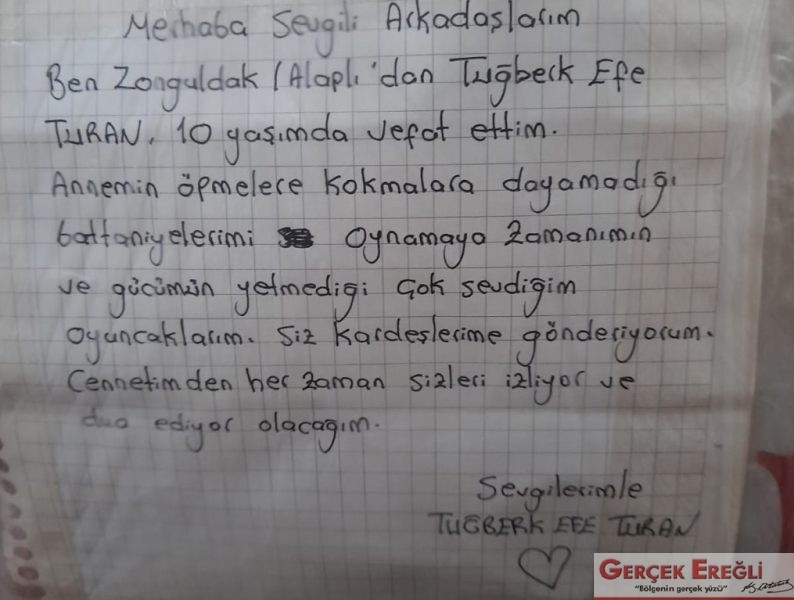 Merhaba Sevgili Arkadaşlarım
Ben Zonguldak / Alaplı'dan Tuğberk Efe
TURAN. 10 yaşımda vefat ettim.
Annemin öpmelere kokmalara dayamadığı
battaniyelerimi oynamaya zamanımın
ve gücümün yetmediği çok sevdiğim
oyuncaklarım. Siz kardeşlerime gönderiyorum.
Cennetimden her zaman sizleri izliyor ve
dua ediyor olacağım.
Sevgilerimle
TUĞBERK EFE TURAN
GERÇEK EREĞLİ
"Bölgenin gerçek yüzü"